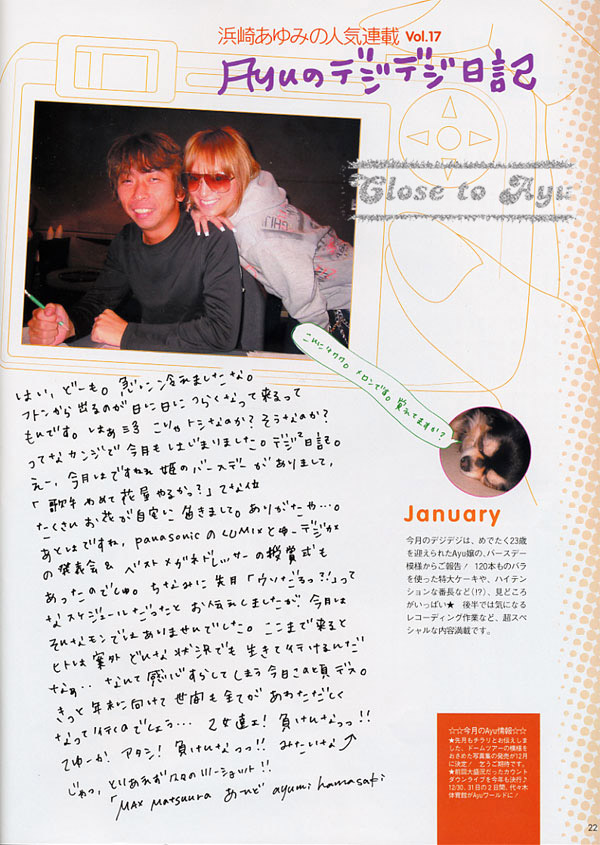 浜崎あゆみの人気連載 Vol.17
Ayuのデジデジ日記
Close to Ayu
こんにちワワ。メロンです。覚えてますか？
はい、どーも。急に冷えましたな。
フトンから出るのが日に日につらくなって来るって
もんです。はぁ… こりゃトシなのか？そうなのか？
ってなカンジで今月もはじまりました。デジ²日記。
えー、今月はですねぇ姫のバースデーがありまして、
「歌手やめて花屋やるかっ？」てな位
たくさんお花が自宅に届きまして。ありがたや…。
あとはですね、panasonicのLUMIXとゆーデジカメ
の発表会& ベストメガネドレッサーの授賞式も
あったのでしゅ。ちなみに先月「ウソだろっ？！」って
なスケジュールだったとお伝えしましたが、今月は
そんなモンではありませんでした。ここまで来ると
ヒトは案外どんな状況でも生きて行けるんだ
なぁ… なんて感心すらしてしまう今日この頃デス。
きっと年末に向けて世間も全てがあわただしく
なって行くのでしょう… 乙女達ェ！負けんなっっ！！
てゆーか、アタシ！負けんなっっ！！みたいな
じゃっ、とりあえず久々のツーショット！！
「MAX MATSUURA あーんど ayumi hamasaki
January
今月のデジデジは、めでたく23歳
を迎えられたAyu嬢の、バースデー
模様からご報告！ 120本ものバラ
を使った特大ケーキや、ハイテン
ションな番長など(!?)、見どころ
がいっぱい★ 後半では気になる
レコーディング作業など、超スペ
シャルな内容満載です。
☆☆今月のAyu情報☆☆
★先月もチラリとお伝えしま
した、ドームツアーの模様を
おさめた写真集の発売が12月
に決定！ 乞うご期待です。
★前回大盛況だったカウント
ダウンライブを今年も決行♪
12/30、31日の2日間、代々木
体育館がAyuワールドに！
22